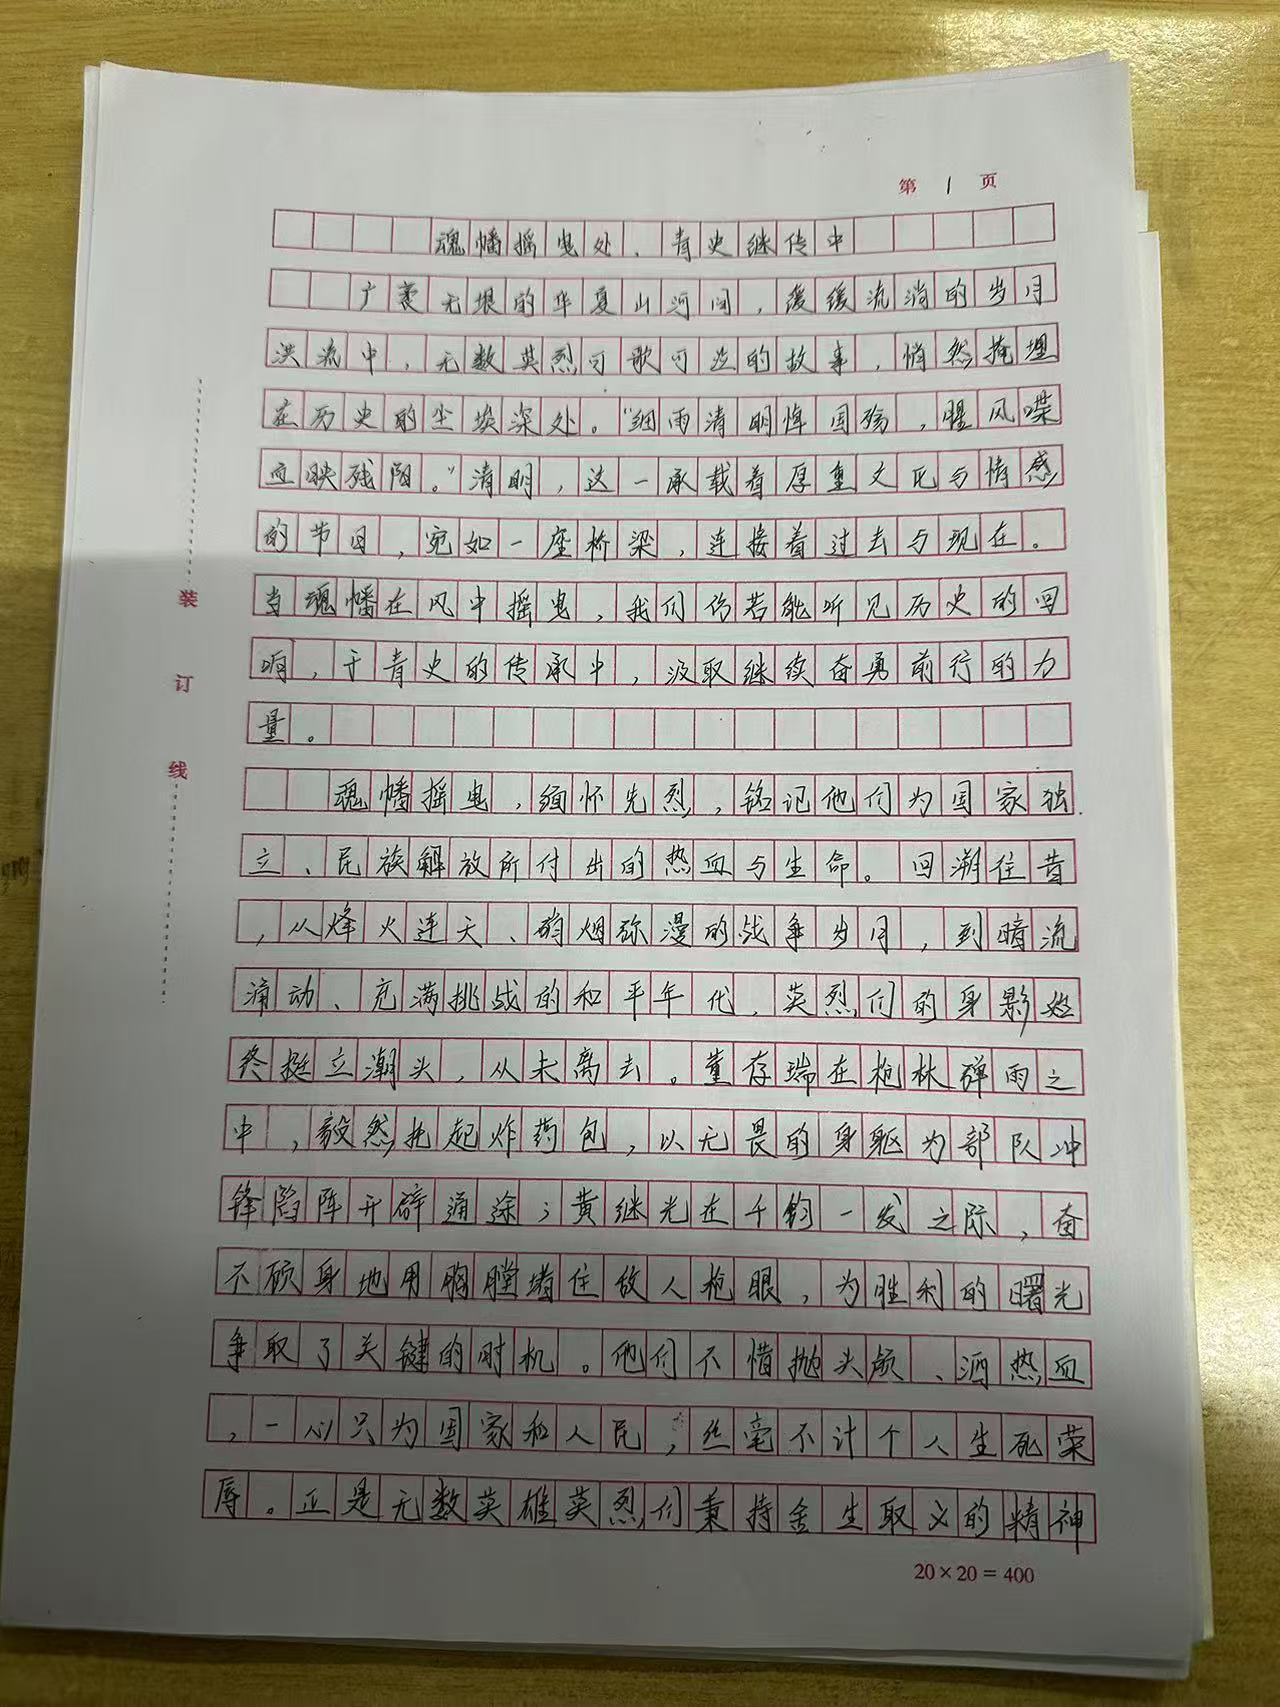 第 1 页
魂幡摇曳处、青史继传中
广袤无垠的华夏山河间，缓缓流淌的岁月
洪流中，无数英烈可歌可泣的故事，悄然掩埋
在历史的尘埃深处。“细雨清明悼国殇，腥风喋
血映残阳。”清明，这一承载着厚重文化与情感
的节日，宛如一座桥梁，连接着过去与现在。
当魂幡在风中摇曳，我们仿若能听见历史的回
响，于青史的传承中，汲取继续奋勇前行的力
量。
魂幡摇曳，缅怀先烈，铭记他们为国家独
立、民族解放所付出的热血与生命。回溯往昔
，从烽火连天、硝烟弥漫的战争岁月，到暗流
涌动、充满挑战的和平年代，英烈们的身影始
终挺立潮头，从未离去。董存瑞在枪林弹雨之
中，毅然抱起炸药包，以无畏的身躯为部队冲
锋陷阵开辟通途；黄继光在千钧一发之际，奋
不顾身地用胸膛堵住敌人枪眼，为胜利的曙光
争取了关键的时机。他们不惜抛头颅、洒热血
，一心只为国家和人民，丝毫不计个人生死荣
辱。正是无数英雄英烈们秉持舍生取义的精神
装
订
线
20×20=400